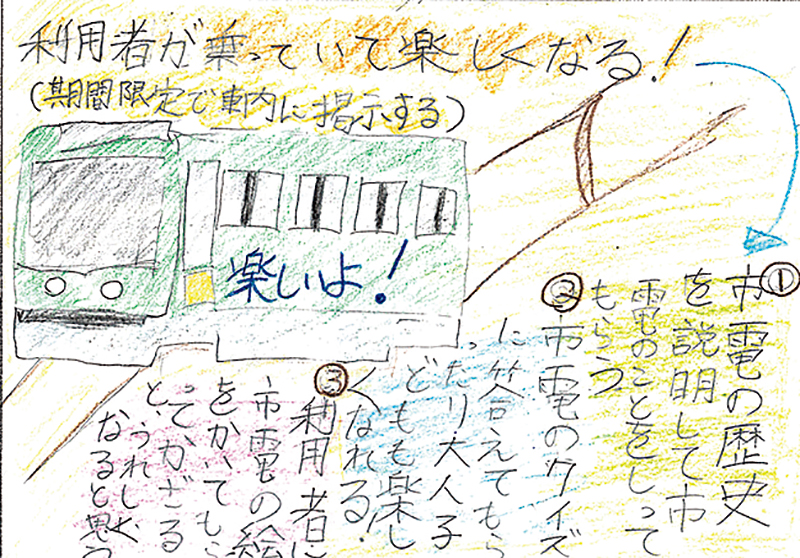 利用者が乗っていて楽しくなる!
(期間限定で車内に掲示する)
楽しいよ!
①市電の歴史
を説明して市
電のことをしって
もらう
②市電のクイズ
に答えてもら
ったり大人子
どもも楽し
くなれる!
③利用者に
市電の絵
をかいてもら
ってかざる
と、うれしく
なると思う